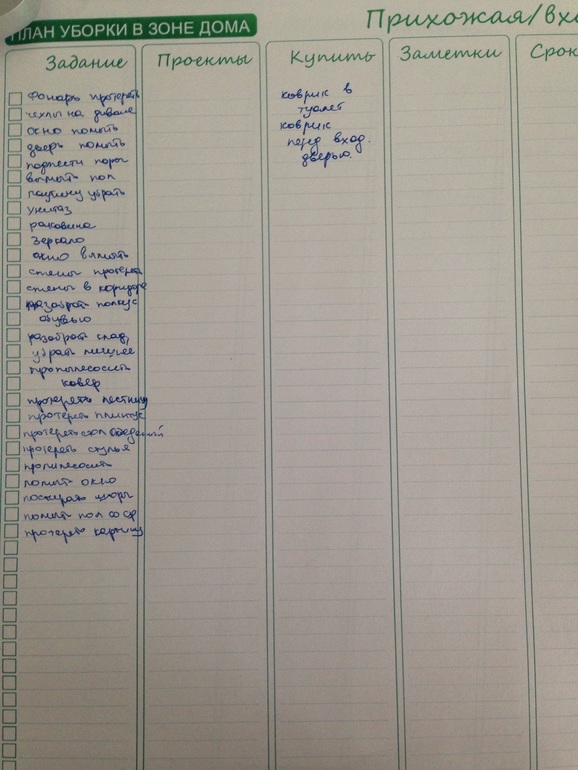 ПЛАН УБОРКИ В ЗОНЕ ДОМА
Прихожая/вхо
Задание
Проекты
Купить
Заметки
Срок
фонарь протереть
чехлы на диване
окно помыть
дверь помыть
подмести порог
вымыть пол
паутину убрать
унитаз
раковина
зеркало
окно вымыть
стены протереть
стены в коридоре
разобрать полку с
обувью
разобрать склад,
убрать лишнее
пропылесосить
ковер
протереть лестницу
протереть плинтус
протереть стол обеденный
протереть стулья
пропылесосить
помыть окно
постирать шторы
помыть пол со ср
протереть картину
коврик в
туалет
коврик
перед вход.
дверью.